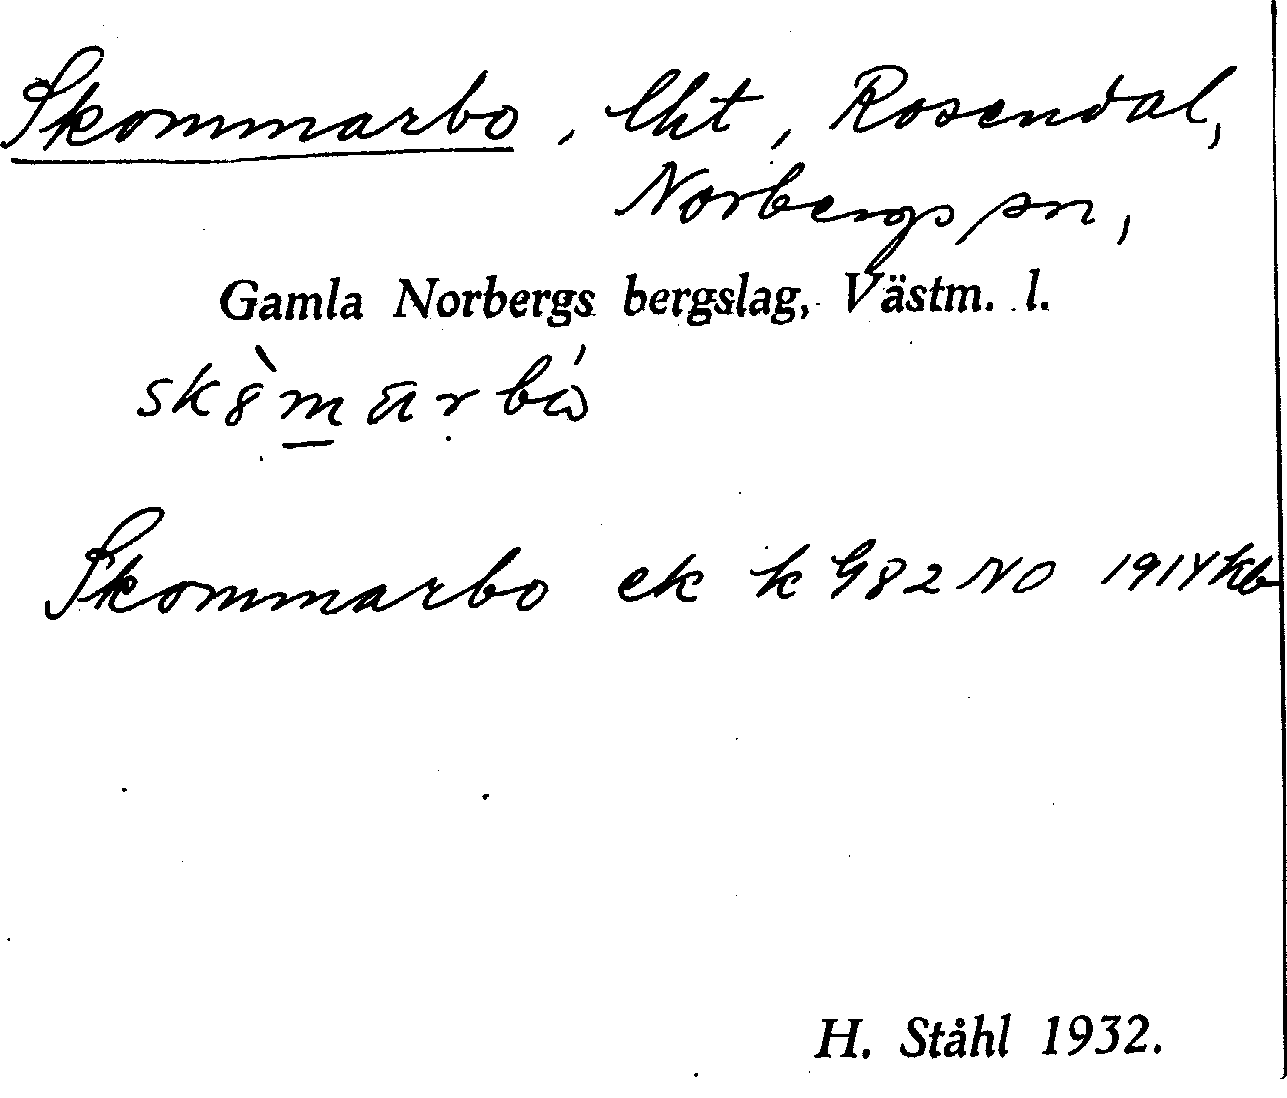 Skommarbo, lht, Rosendal,
Norbergs sn,
Gamla Norbergs bergslag, Västm. l.
Skommarbo ek k G82 NO 1914 kb
H. Ståhl 1932.